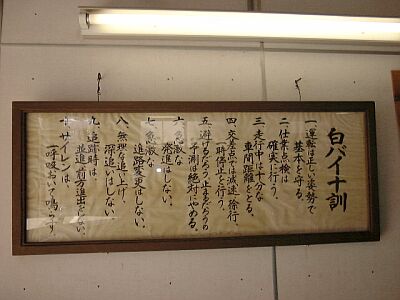 白バイ十訓
一、運転は正しい姿勢で
基本を守る。
二、仕業点検は
確実に行う。
三、走行中は十分な
車間距離をとる。
四、交差点では減速徐行、
一時停止を行う。
五、避けるだろう、止まるだろうの
予測は絶対にやめる。
六、急激な
発進はしない。
七、急激な
進路変更はしない。
八、無理な追い上げ、
深追いはしない。
九、追跡時は、
並進、前方進出をしない。
十、サイレンは、
一呼吸おいて鳴らす。